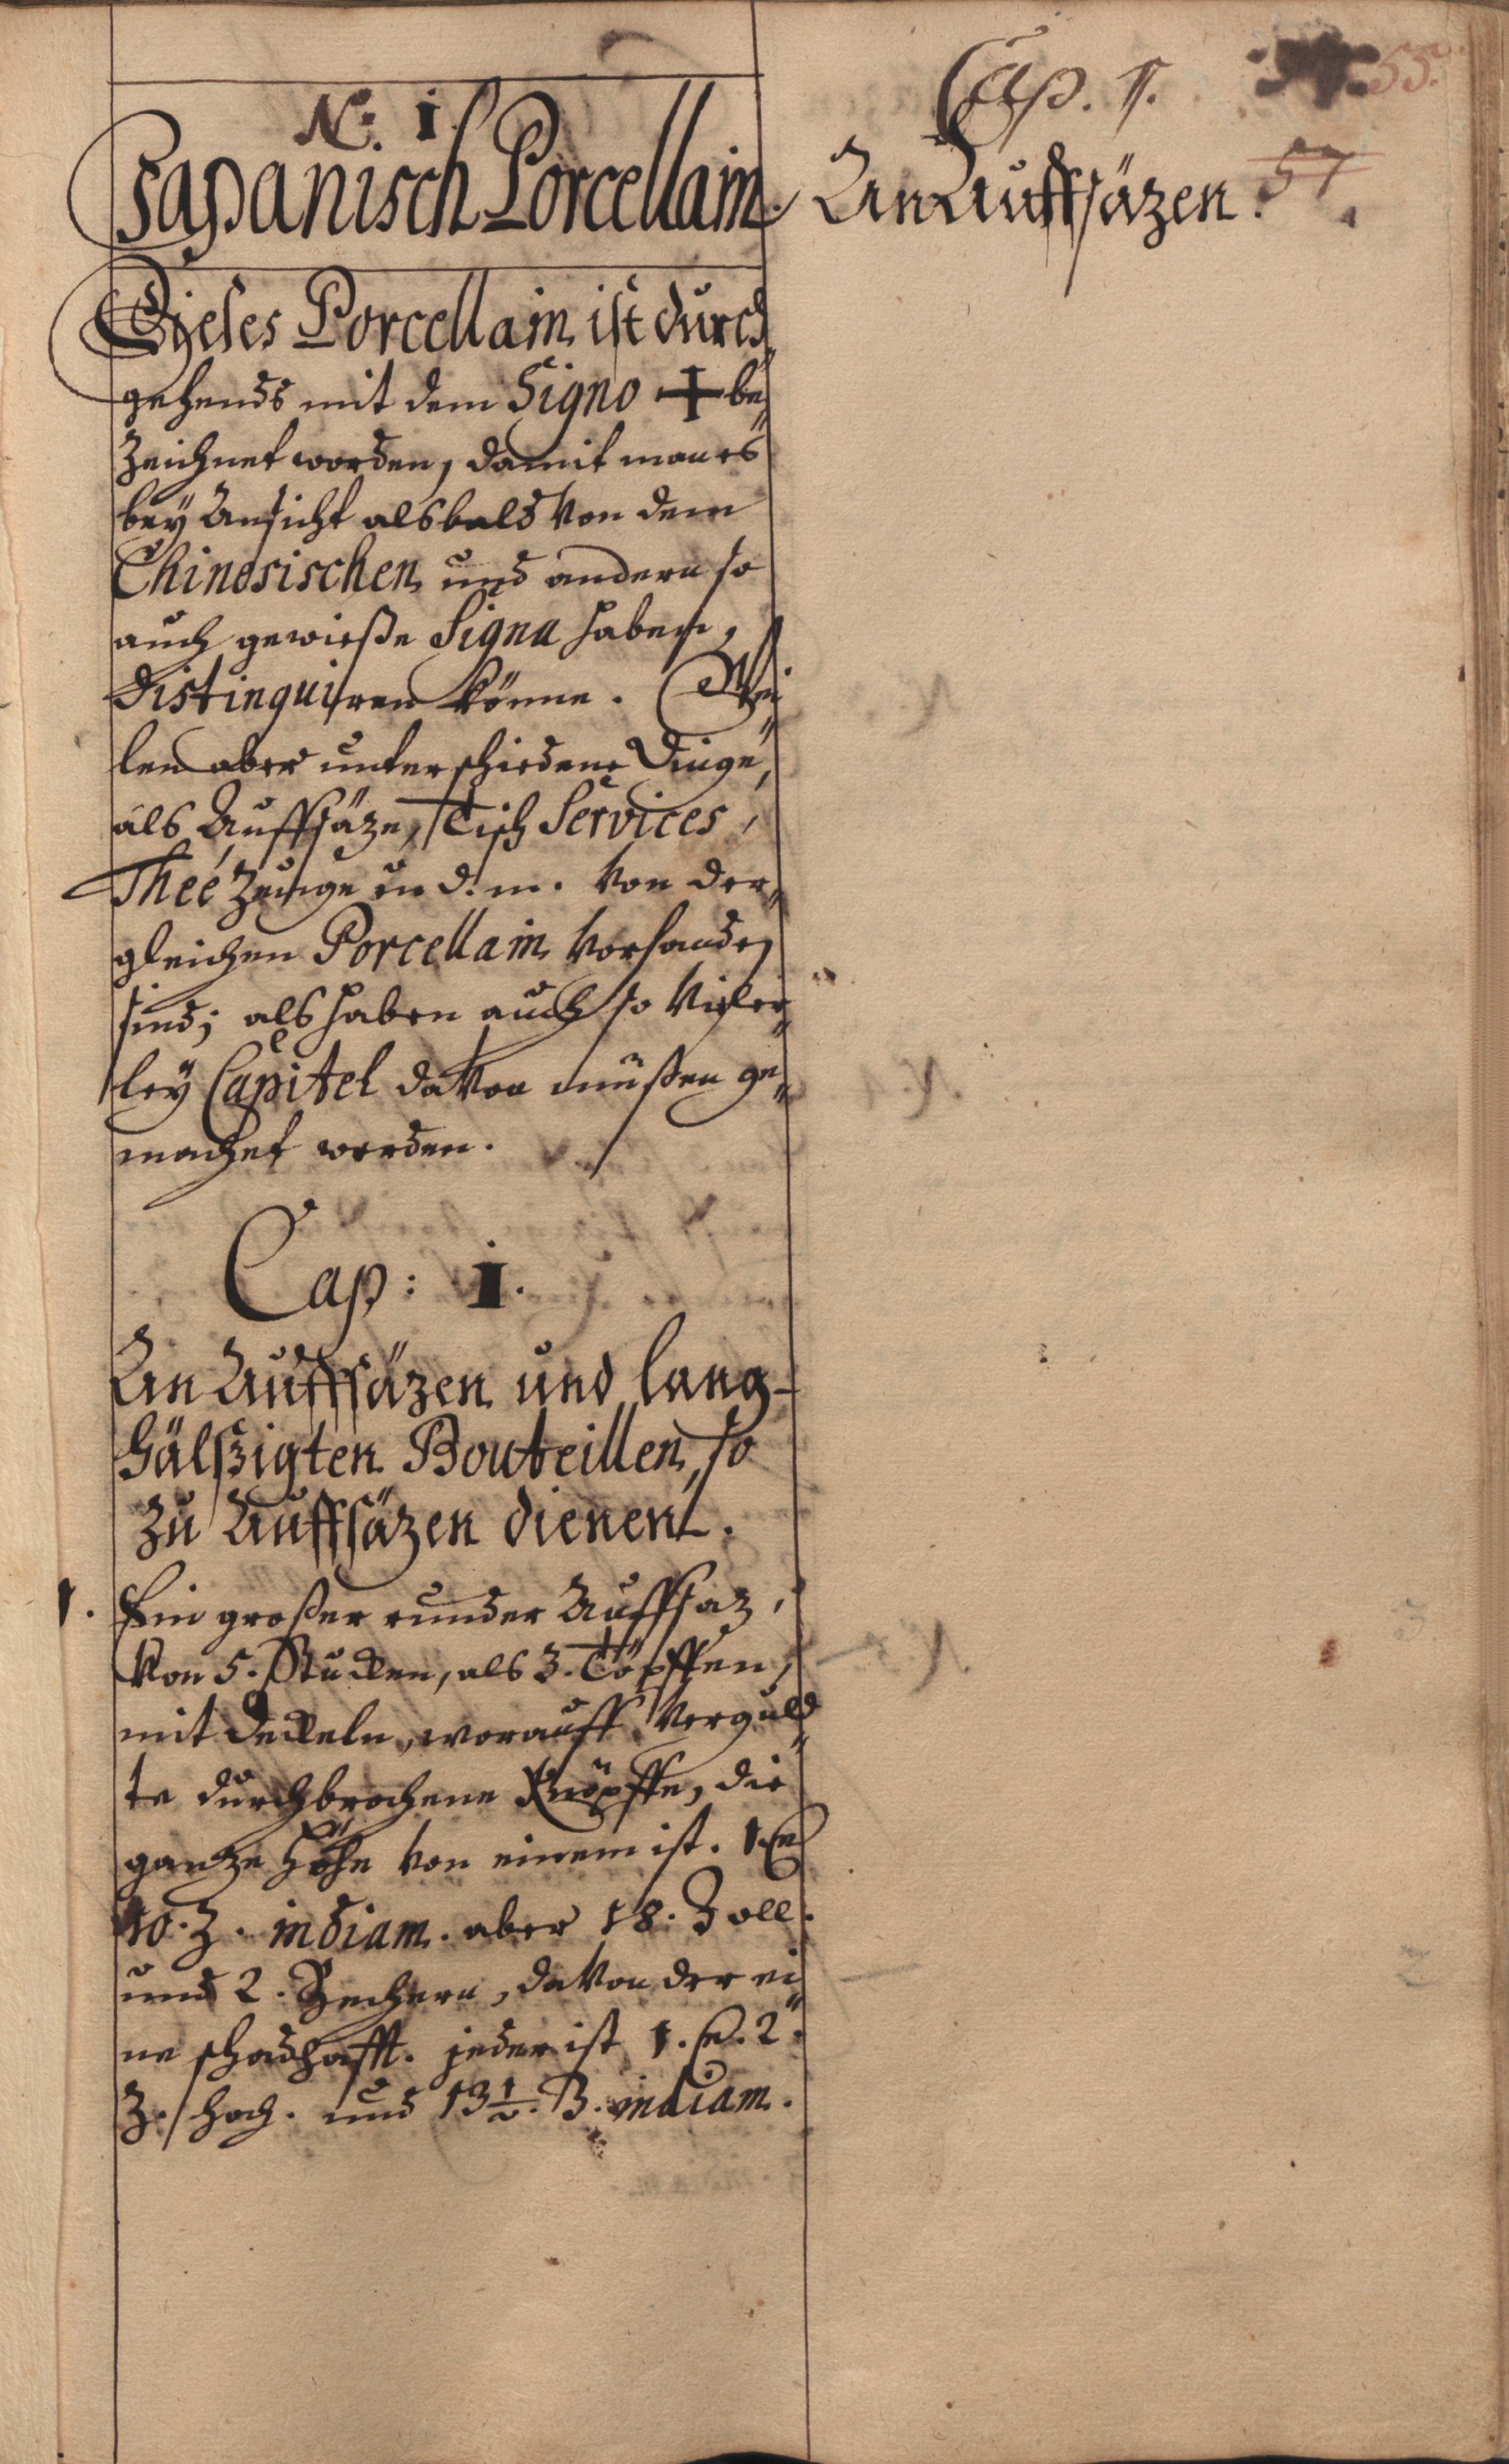 N: 1.
Japanisch Porcellain.
Dieses Porcellain ist durch
gehends mit dem Signo + be,,
zeichnet worden, damit man es
bey Ansicht alsbald von dem
Chinesischen und andern so
auch gewieße Signa haben,
distinguiren könne. Wei,,
len aber unterschiedene Dinge,
als Auffsäze, Tisch Services,
Theé Zeuge u. d. m. von der,,
gleichen Porcellain vorhanden
sind; als haben auch so vieler,,
ley Capitel davon müßen ge,,
machet werden.
Cap: 1.
An Auffsäzen und lang-
hälßigten Bouteillen, so
zu Auffsäzen dienen.
1. Ein großer runder Auffsaz,
von 5. Stucken, als 3. Töpffen,
mit Deckeln, worauff verguld,,
te durchbrochene Knöpffe, die
ganze Höhe von einem ist. 1. E.
10. Z. in diam. aber 18. Zoll.
und 2. Bechern, davon der ei,,
ne schadhafft. jeder ist 1. E. 2.
Z. hoch. und 13½. Z. in diam.
Cap. 1.
An Auffsäzen.
55.
57